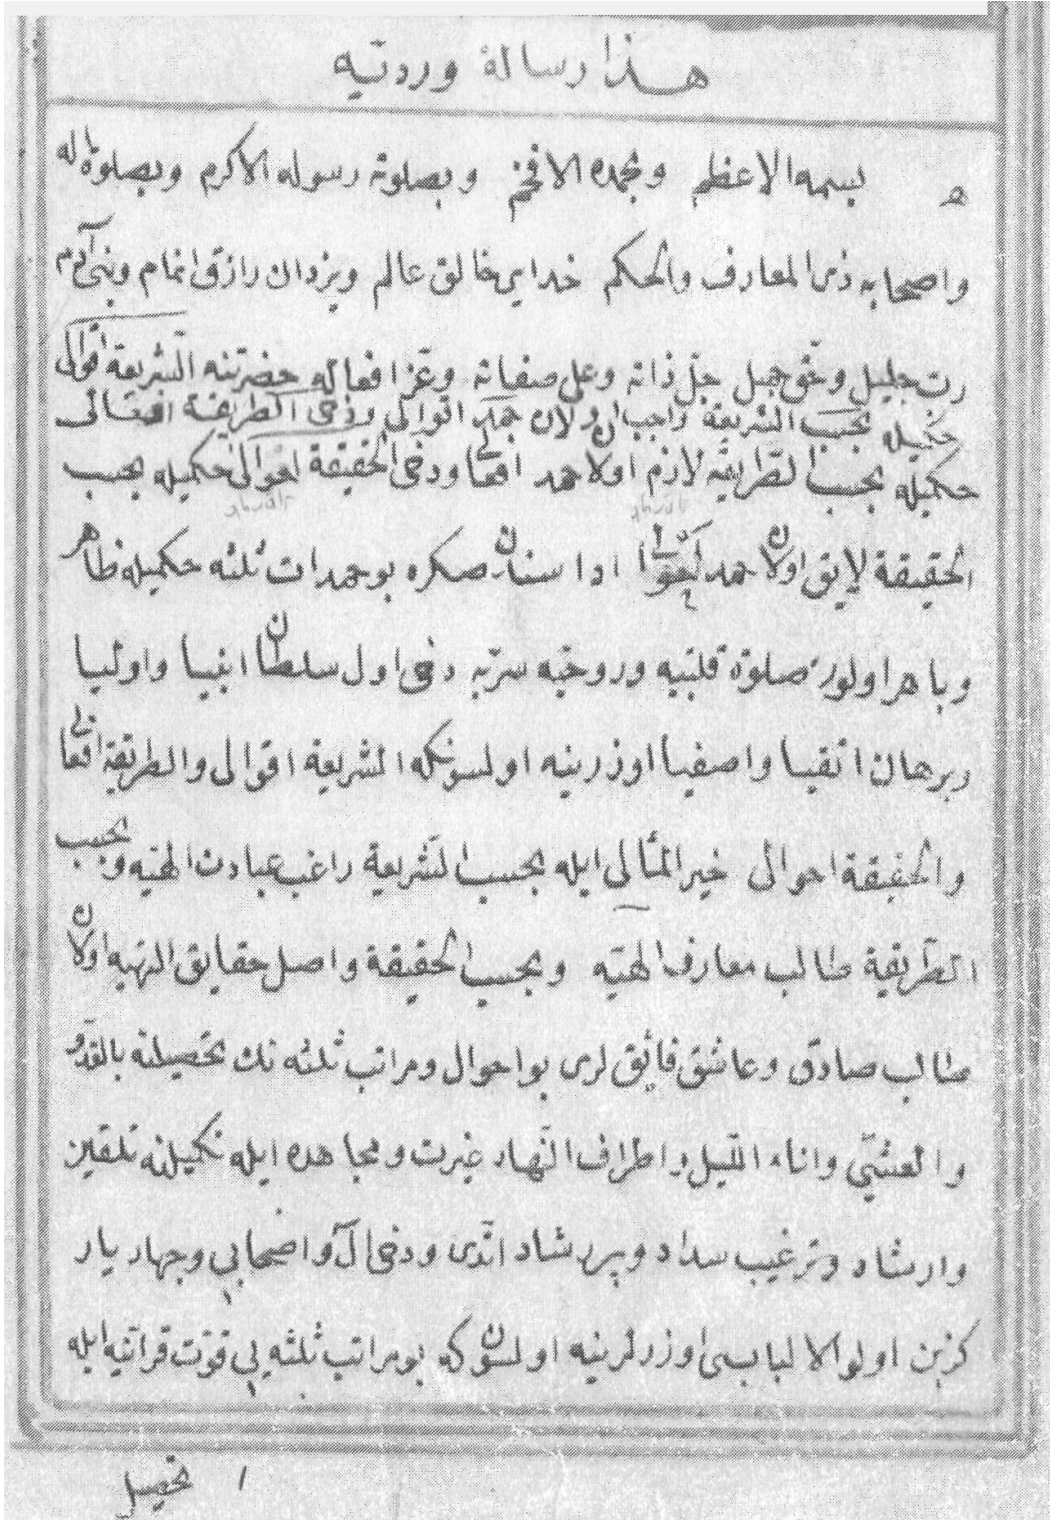 هذا رسالۀ وردتيه
بسمه الاعظم وبحمده الافخم وبصلوته رسوله الاكرم وبصلوة اله
واصحابه ذى المعارف والحكم خداى خالق عالم ويزدان رازق انام وبنى آدم
رب جليل وحق جميل جل ذاته وعلى صفاته وعز افعاله حضرتنه الشريعة اقوالى
حكميله بحسب الشريعة واجب اولان حمد اقوالى ودخى الطريقة افعالى
حكميله بحسب الطريقه لازم اولان حمد افعالى ودخى الحقيقة احوالى حكميله بحسب
الحقيقة لايق اولان حمد احوالى اداسندن صكره بو حمدات ثلثه حكميله ظاهر
وباهر اولور صلوة قلبيه وروحيه سريه دخى اول سلطان انبيا واوليا
وبرهان اتقيا واصفيا اوزرينه اولسونكه الشريعة اقوالى والطريقة افعالى
والحقيقة احوالى خير المثالى ايله بحسب الشريعة راغب عبادت الهيه وبحسب
الطريقة طالب معارف الهيه وبحسب الحقيقة واصل حقايق الهيه اولان
طالب صادق وعاشق فائق لرى بو احوال ومراتب ثلثه نك تحصيلنه بالغدو
والعشى واناء الليل واطراف النهار غيرت ومجاهده ايله تكميلنه تلقين
وارشاد وترغيب سداد وپر رشاد اتدى ودخى آل واصحابى وچهار يار
كزين اولو الالبابى اوزرلرينه اولسون كه بو مراتب ثلثه يى قوت قرآنيه ايله
تحصيل ١